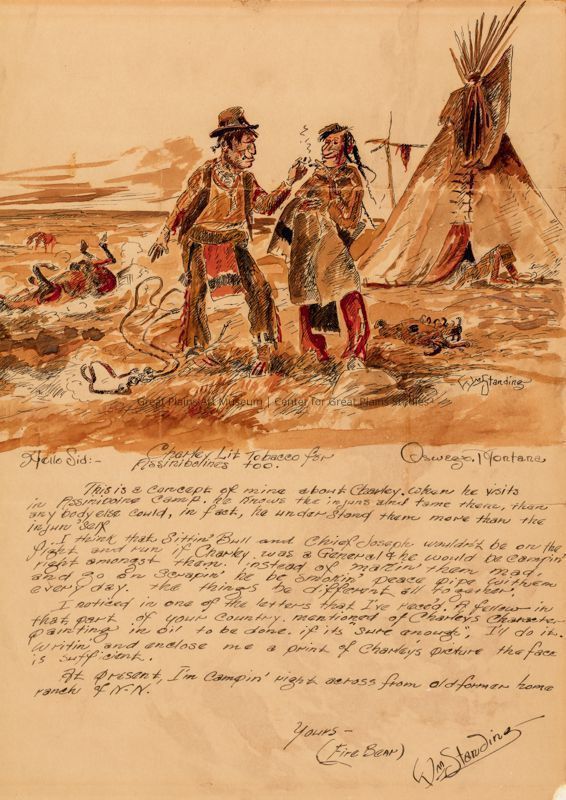 Wm Standing
Great Plains Art Museum | Center for Great Plains Studies
Hello Sid:- Charley Lit Tobacco for Oswego, Montana
Assiniboines too.
This is a concept of mine about Charley. when he visits
in Assiniboine Camp. he knows the injuns and tame them, than
any body else could, in fact, he understand them more than the
injun self
I think that Sittin' Bull and Chief Joseph wouldn't be on the
fight and run if Charley was a General & he would be campin'
right amongst them. instead of makin' them mad,
and go on scrapin' he be smokin' peace pipe with em
every day. the things be different all together.
I noticed in one of the letters that I've reced. A fellow in
that part of your country. mentioned of Charley's Character
painting in oil to be done. if its "sure enough", I'll do it.
Writin' and enclose me a print of Charleys picture the face
is sufficient.
At present, I'm campin' right across from old former home
ranch of N-N.
Yours -
(Fire Bear)
Wm Standing